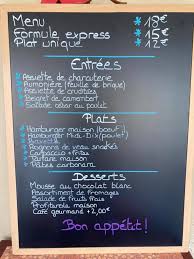 Menu 18€
Formule express 15€
Plat unique 12€
Entrées
Assiette de charcuterie
Aumonière (feuille de brique)
Assiette de crudités
Beignet de camembert
Salade cabar au poulet
Plats
Hamburger maison (boeuf)
Hamburger Midi-Dix (poulet)
Bavette
Rognons de veau snackés
Carpaccio + frites
Tartare maison
Pâtes carbonara
Desserts
Mousse au chocolat blanc
Assortiment de fromages
Salade de fruits frais
Profiterole maison
Café gourmand +2,00€
Bon appétit!